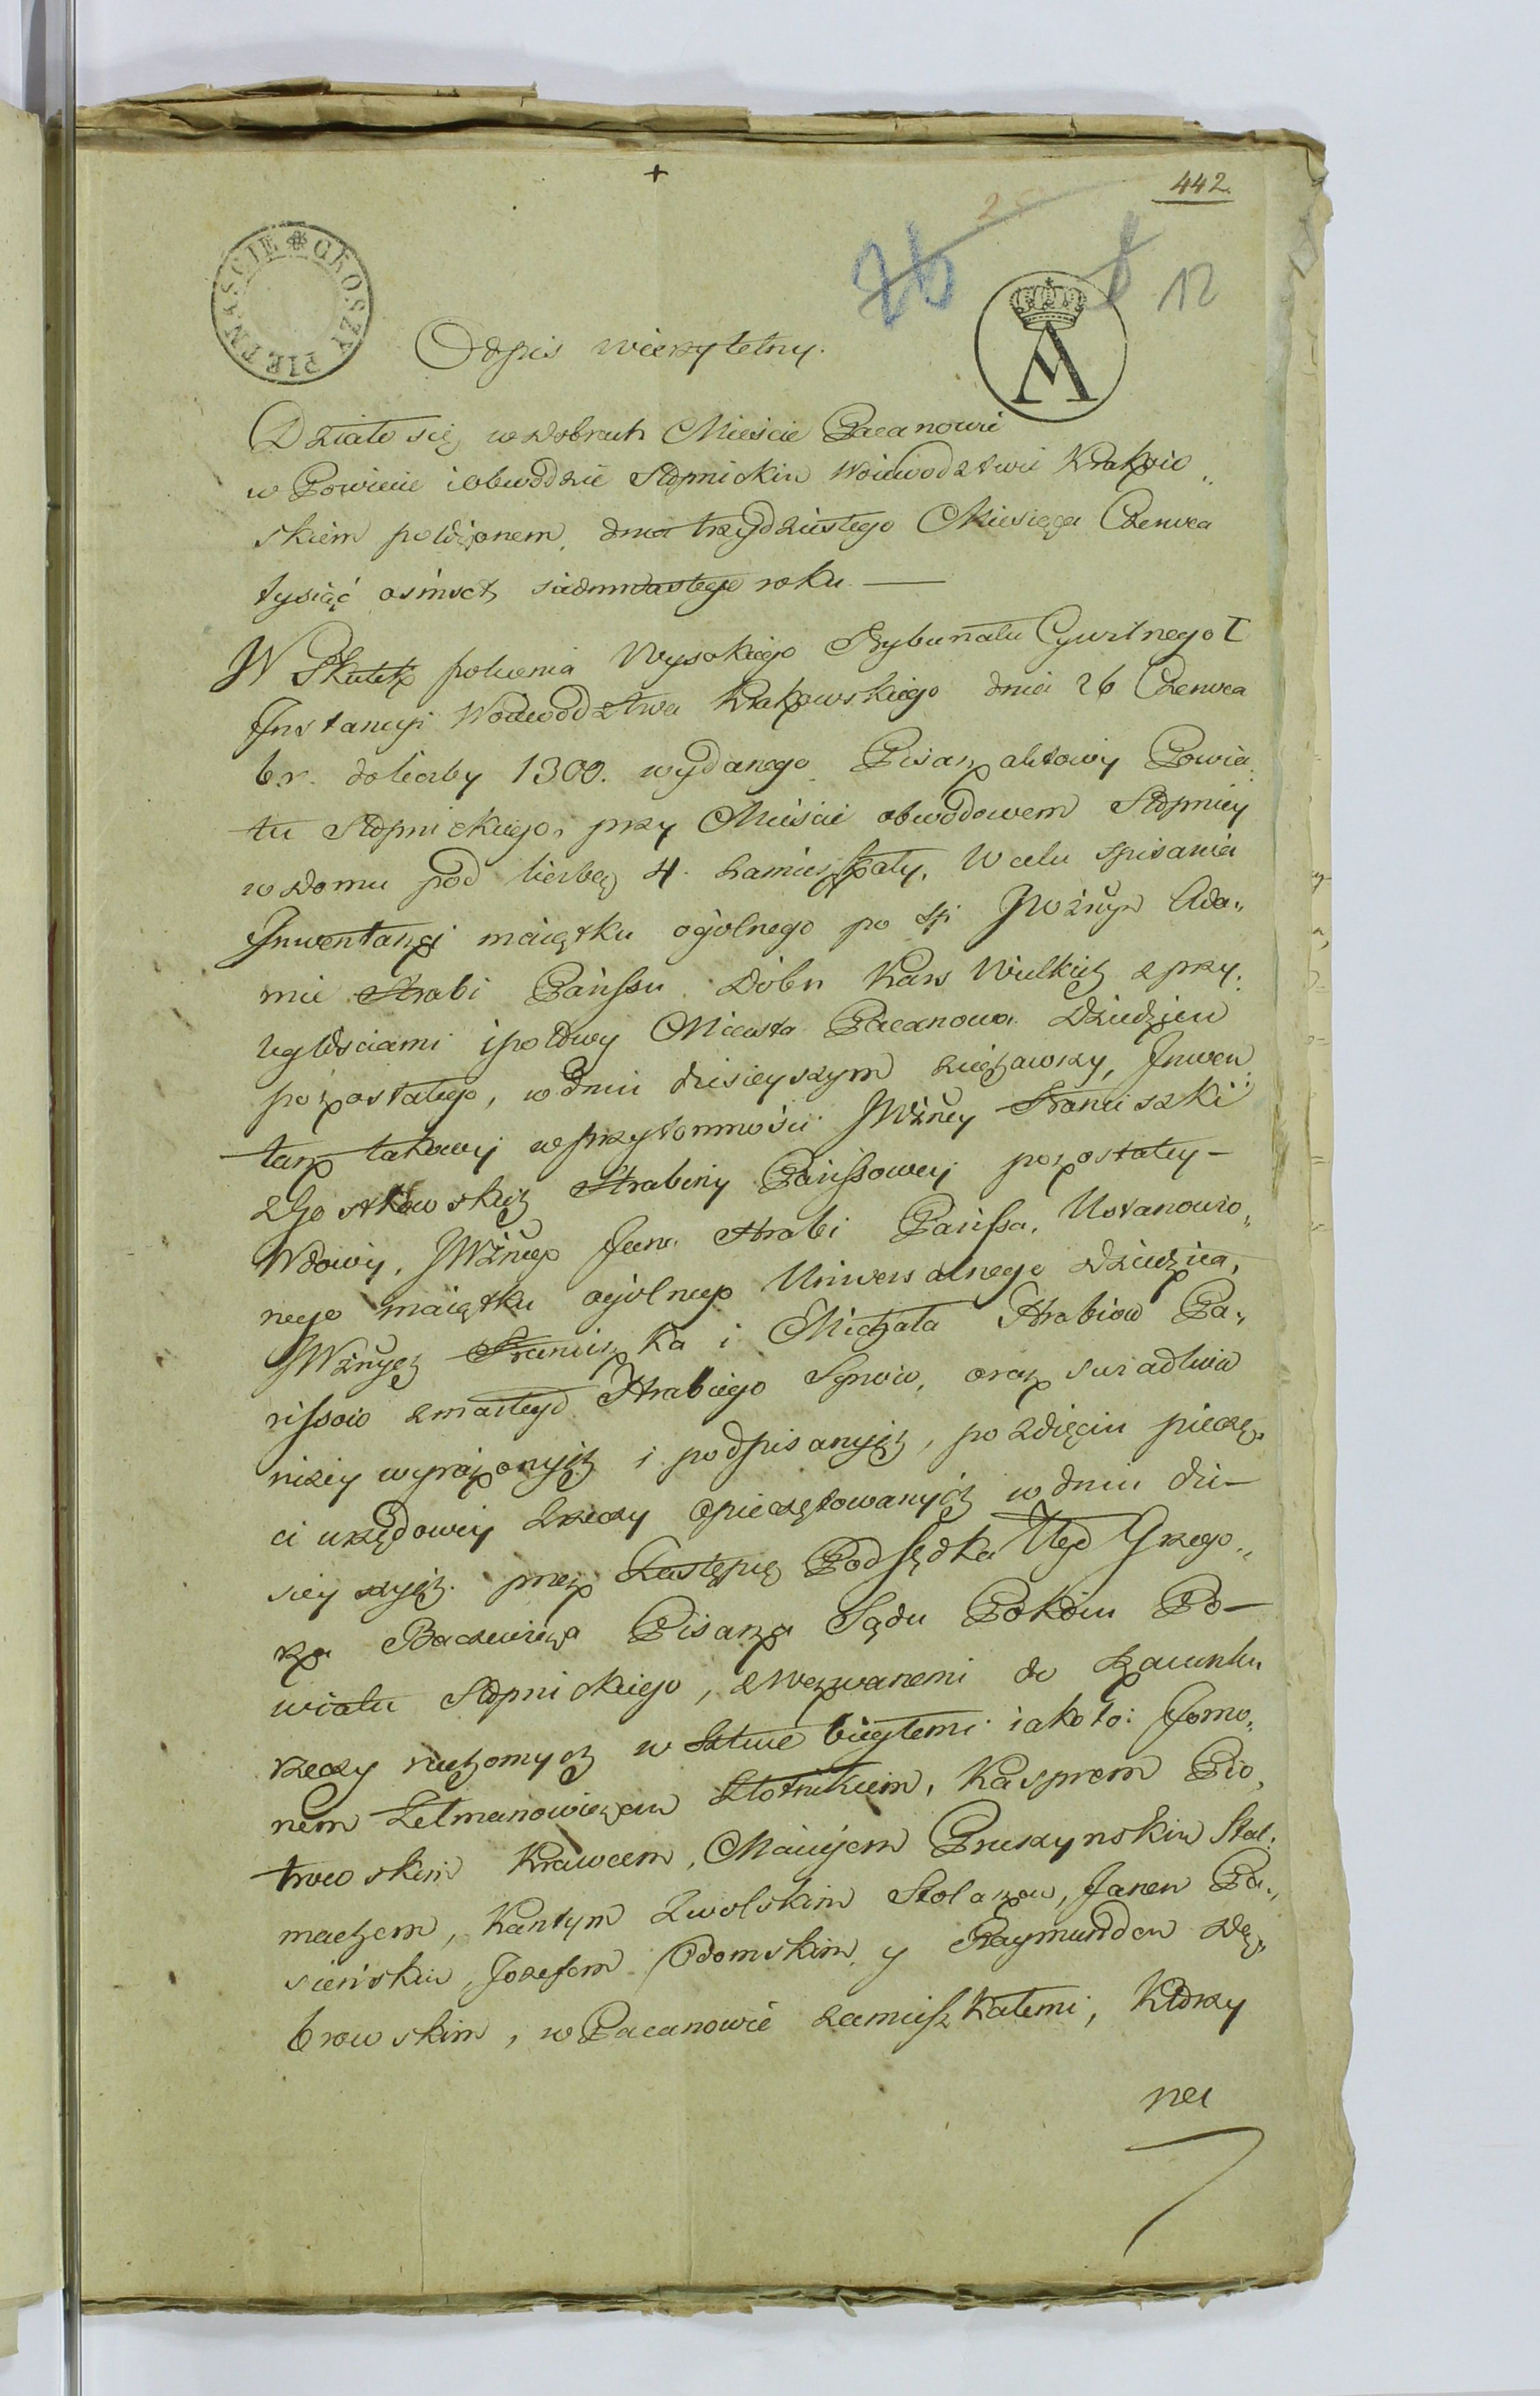 442.
26
12
PIETNAŚCIE GROSZY
A
Odpis wierzytelny.
Działo się w dobrach Mieście Pacanowie
w Powiecie i obwodzie Stopnickim Woiewodztwie Krakow„
skiem położonem, dnia trzydziestego Miesiąca Czerwca
tysiąć osmset siedmnastego roku. —
W Skutek polecenia Wysokiego Trybunału Cywilnego I
Instancyi Woiewodztwa Krakowskiego dnia 26 Czerwca
b.r. do liczby 1300. wydanego Pisarz aktowy Powia„
tu Stopnickiego, przy Mieście obwodowem Stopnicy
w domu pod liczbą 4. zamieszkały, W celu spisania
Inwentarza maiątku ogólnego po śp. JWożnym Ada„
mie Hrabi Parissu dóbr Kars Wielkich z przy„
ległościami i połowy Miasta Pacanowa Dziedzicu
pozostałego, w dniu dzisieyszym ziechawszy, Inwen„
tarz takowy w przytomności JWżney Franciszki
z Gostkowskich Hrabiny Parissowey pozostałey —
Wdowy, JWżnego Jana Hrabi Parissa, Ustanowio„
nego maiątku ogólnego Uniwersalnego Dziedzica,
JWżnych Franciszka i Michała Hrabiow Pa„
rissow zmarłego Hrabiego Synow, oraz swiadków
niżey wyrażonych i podpisanych, po zdięciu pieczę„
ci urzędowey z rzeczy opieczętowanych w dniu dzi—
sieyszych przez Zastępcę Podsędka Wgo Grzego„
rza Baczewicza Pisarza Sądu Pokoiu Po—
wiatu Stopnickiego, z wezwanemi do szacunku
rzeczy ruchomych w sztuce biegłemi iako to:
nem Zelmanowiczem Złotnikiem, Kasprem Pio„
trowskim Krawcem, Maciejem Pruszynskim Stel„
machem, Kantym Zwolskim Stolarzem, Janem Pa„
sieńskim, Jozefem Adomskim y Raymundem Dą„
browskim, w Pacanowie zamieszkałemi, Którzy
na